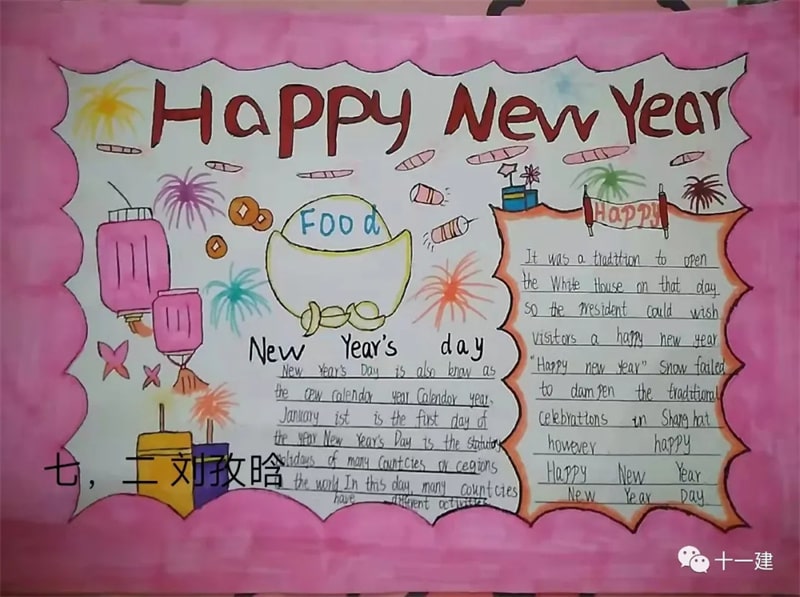 Happy New Year
Food
Happy
New Year's day
New Year's Day is also know as
the cew calendar year Calendor year,
January ist is the first day of
the year New Year's Day is the statutory
holidays of many Countcies or cegions
the world In this day, many countcies
have different activities
It was a tradition to open
the White House on that day
so the president could wish
visitors a happy new year
"Happy new year" snow failed
to dampen the traditional
celebrations in Shanghai
however happy
Happy New Year
New Year Day
七，二 刘孜晗
十一建